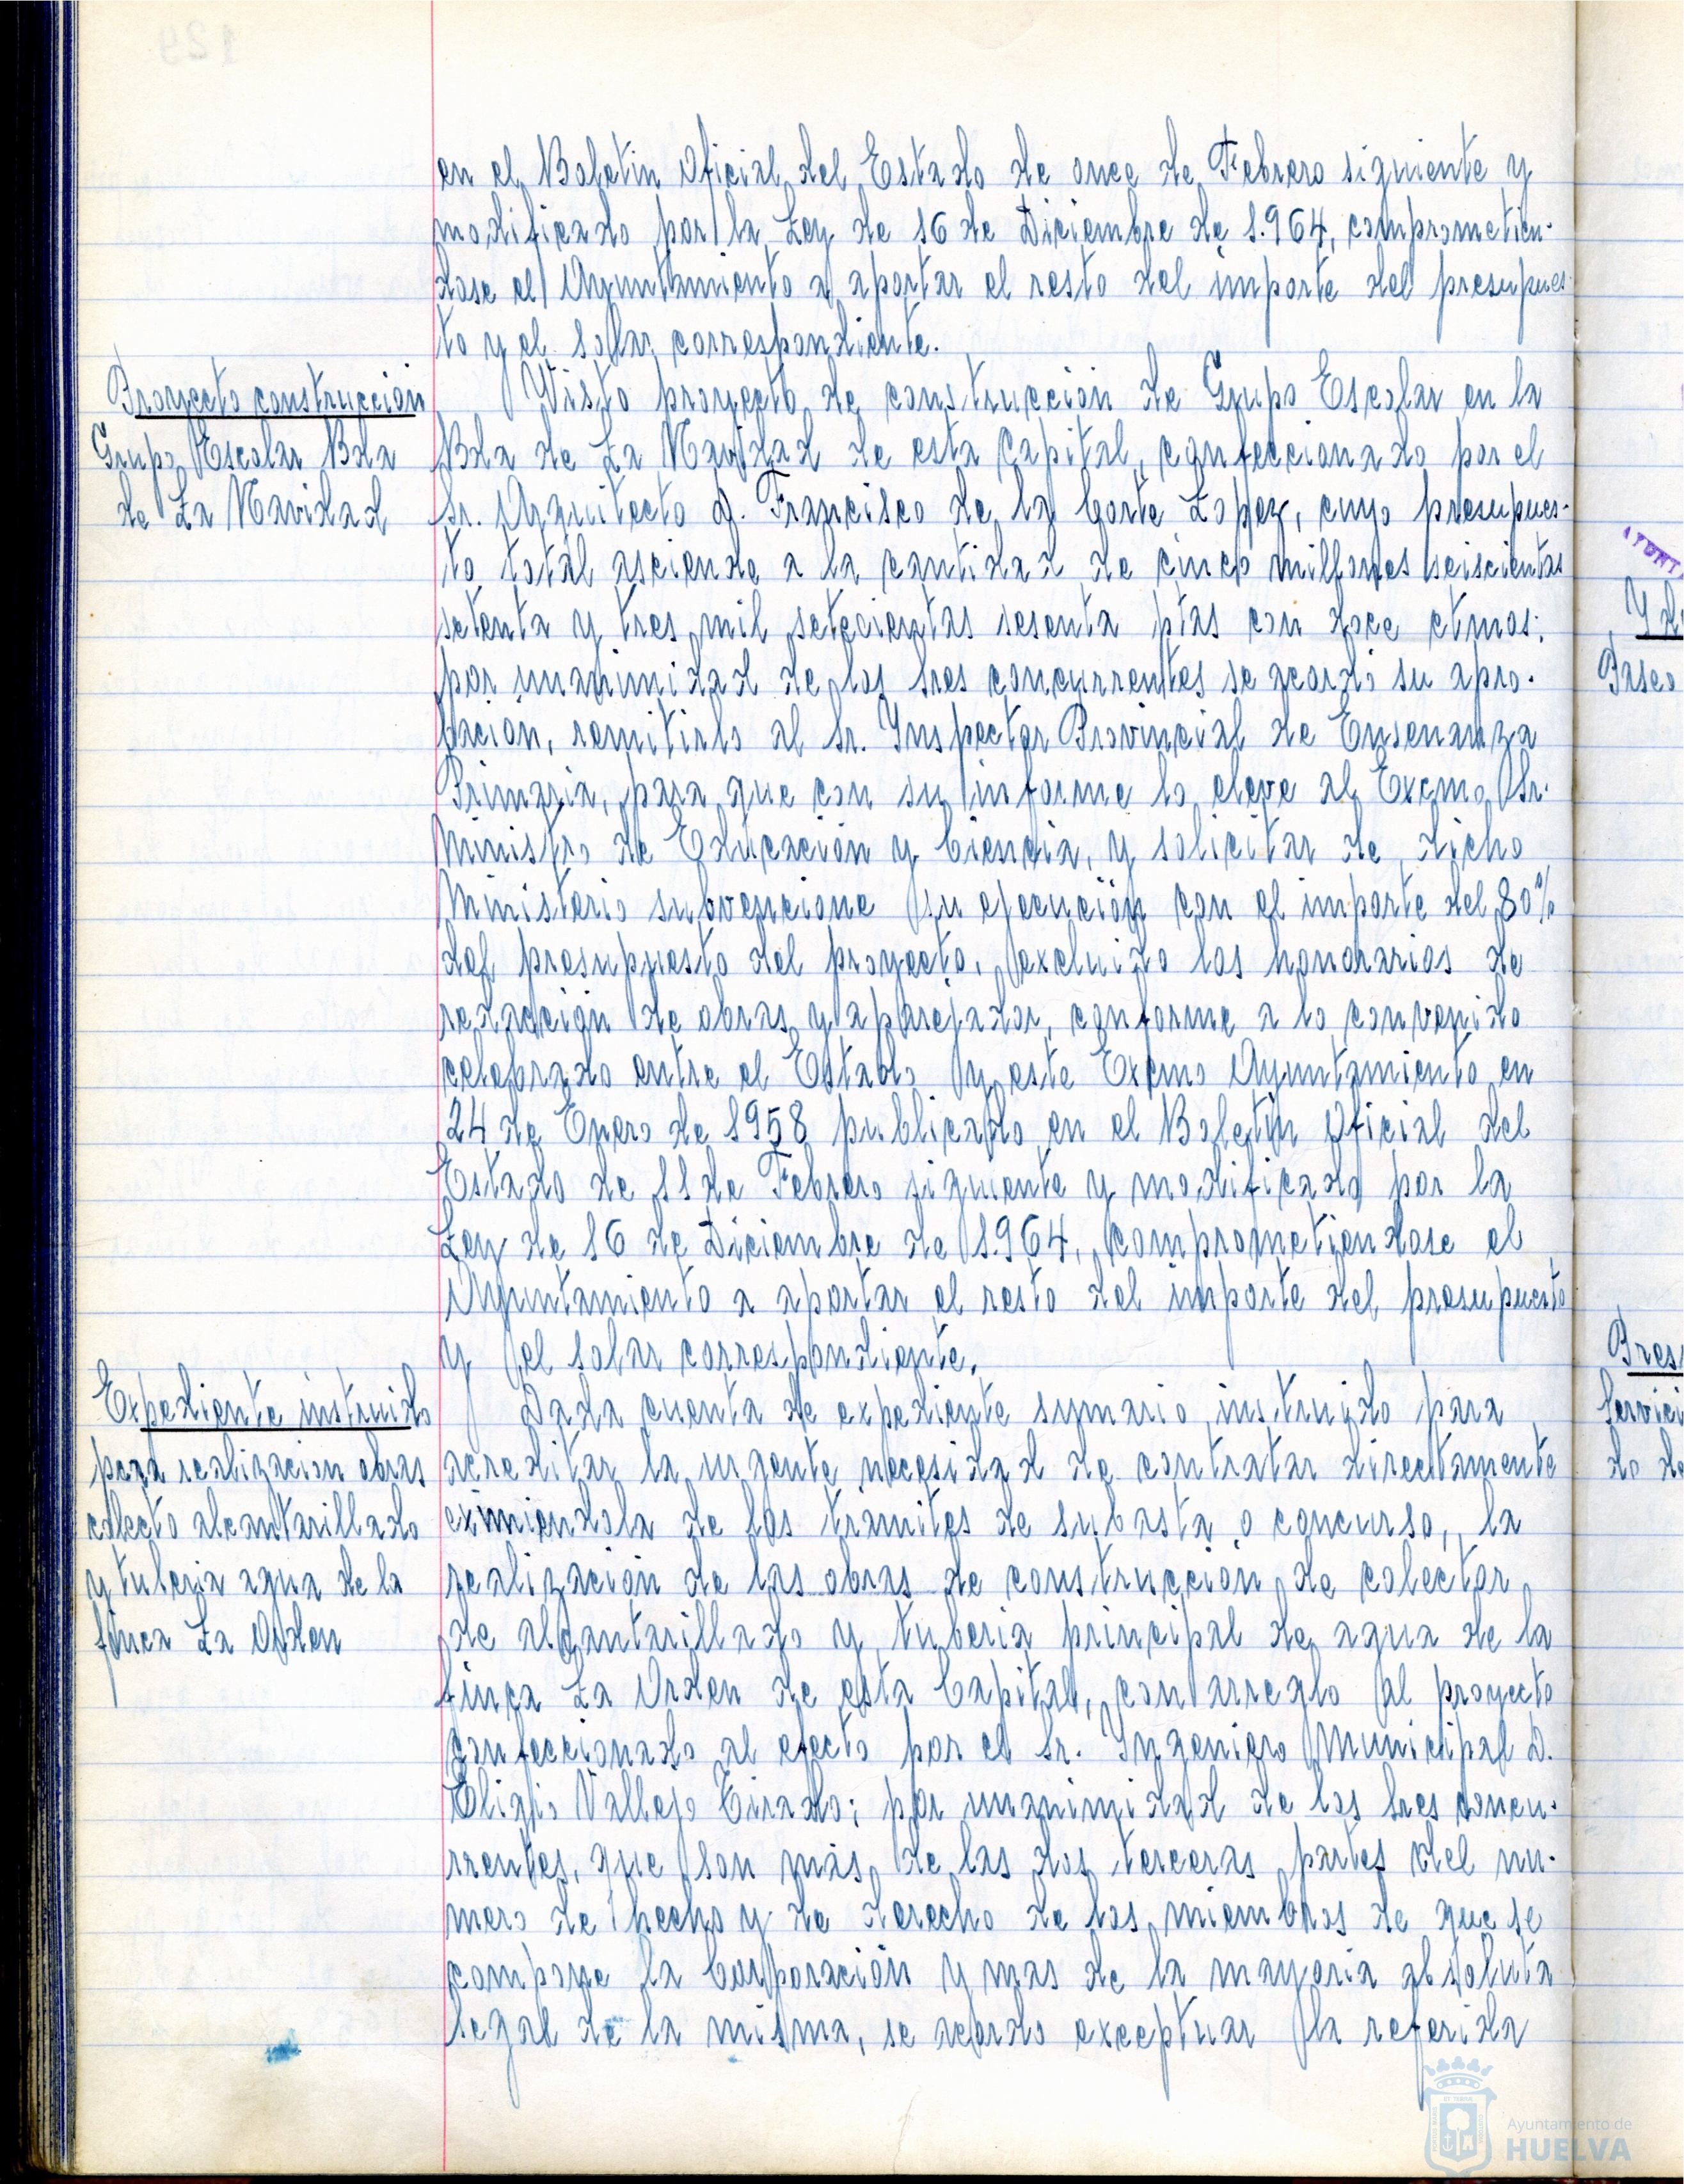 en el Boletin Oficial del Estado de once de Febrero siguiente y
modificado por la Ley de 16 de Diciembre de 1.964, comprometien-
dose el Ayuntamiento a aportar el resto del importe del presupues-
to y el solar correspondiente.
Proyecto construccion
Grupo Escolar Bda
de La Navidad
Visto proyecto de construccion de Grupo Escolar en la
Bda de La Navidad de esta Capital, confeccionado por el
Sr. Arquitecto D. Francisco de la Corte Lopez, cuyo presupues-
to total asciende a la cantidad de cinco millones seiscientas
setenta y tres mil setecientas sesenta ptas con doce ctmos;
por unanimidad de los Sres concurrentes se acordó su apro-
bacion, remitirlo al Sr. Inspector Provincial de Ensenanza
Primaria, para que con su informe lo eleve al Excmo Sr.
Ministro de Educación y Ciencia, y solicitar de dicho
Ministerio subvencione su ejecución con el importe del 80%
del presupuesto del proyecto, excluido los honorarios de
redacción de obras y aparejador, conforme a lo convenido
celebrado entre el Estado y este Excmo Ayuntamiento en
24 de Enero de 1958 publicado en el Boletin Oficial del
Estado de 11 de Febrero siguiente y modificado por la
Ley de 16 de Diciembre de 1.964, comprometiendose el
Ayuntamiento a aportar el resto del importe del presupuesto
y el solar correspondiente.
Expediente instruido
para realizacion obras
colecto alcantarillado
y tuberia agua de la
finca La Orden
Dada cuenta de expediente sumario instruido para
acreditar la urgente necesidad de contratar directamente
eximiendola de los tramites de subasta o concurso, la
realización de las obras de construccion de colector
de alcantarillado y tuberia principal de agua de la
finca La Orden de esta Capital, con arreglo al proyecto
confeccionado al efecto por el Sr. Ingeniero Municipal D.
Eligio Vallejo Tirado; por unanimidad de los Sres concu-
rrentes, que son más de las dos terceras partes del nu-
mero de hecho y de derecho de los miembros de que se
compone la Corporación y mas de la mayoria absoluta
legal de la misma, se acordo exceptuar la referida
Paseo
Ayuntamiento de
HUELVA